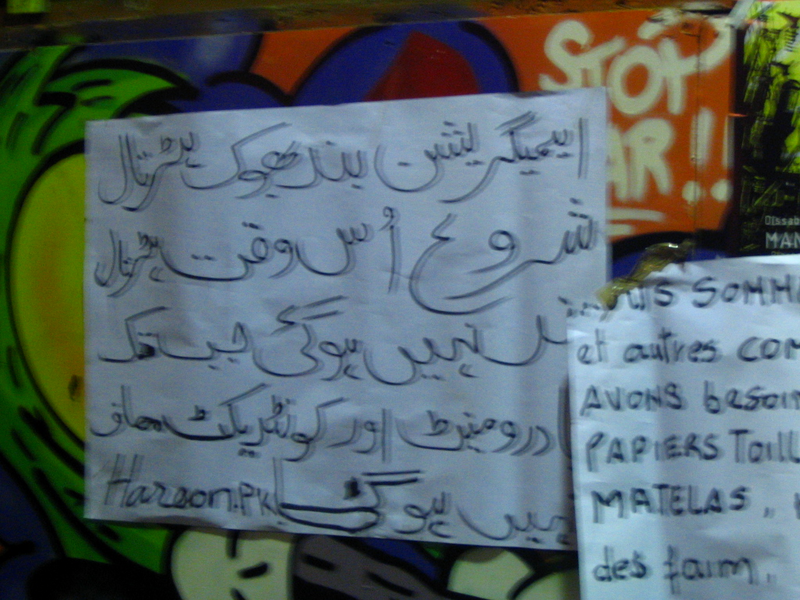 STOP
WAR!!
ایمیگریشن بند بھوک ہڑتال
شروع اُس وقت ہڑتال
نہیں ہوگی جب تک
اور کونٹریکٹ معاف
نہیں ہوگا
Haroon.PK
MAN
SOMM
et autres COM
AVONS besoin
PAPIERS TOILL
MATELAS,
des faim.